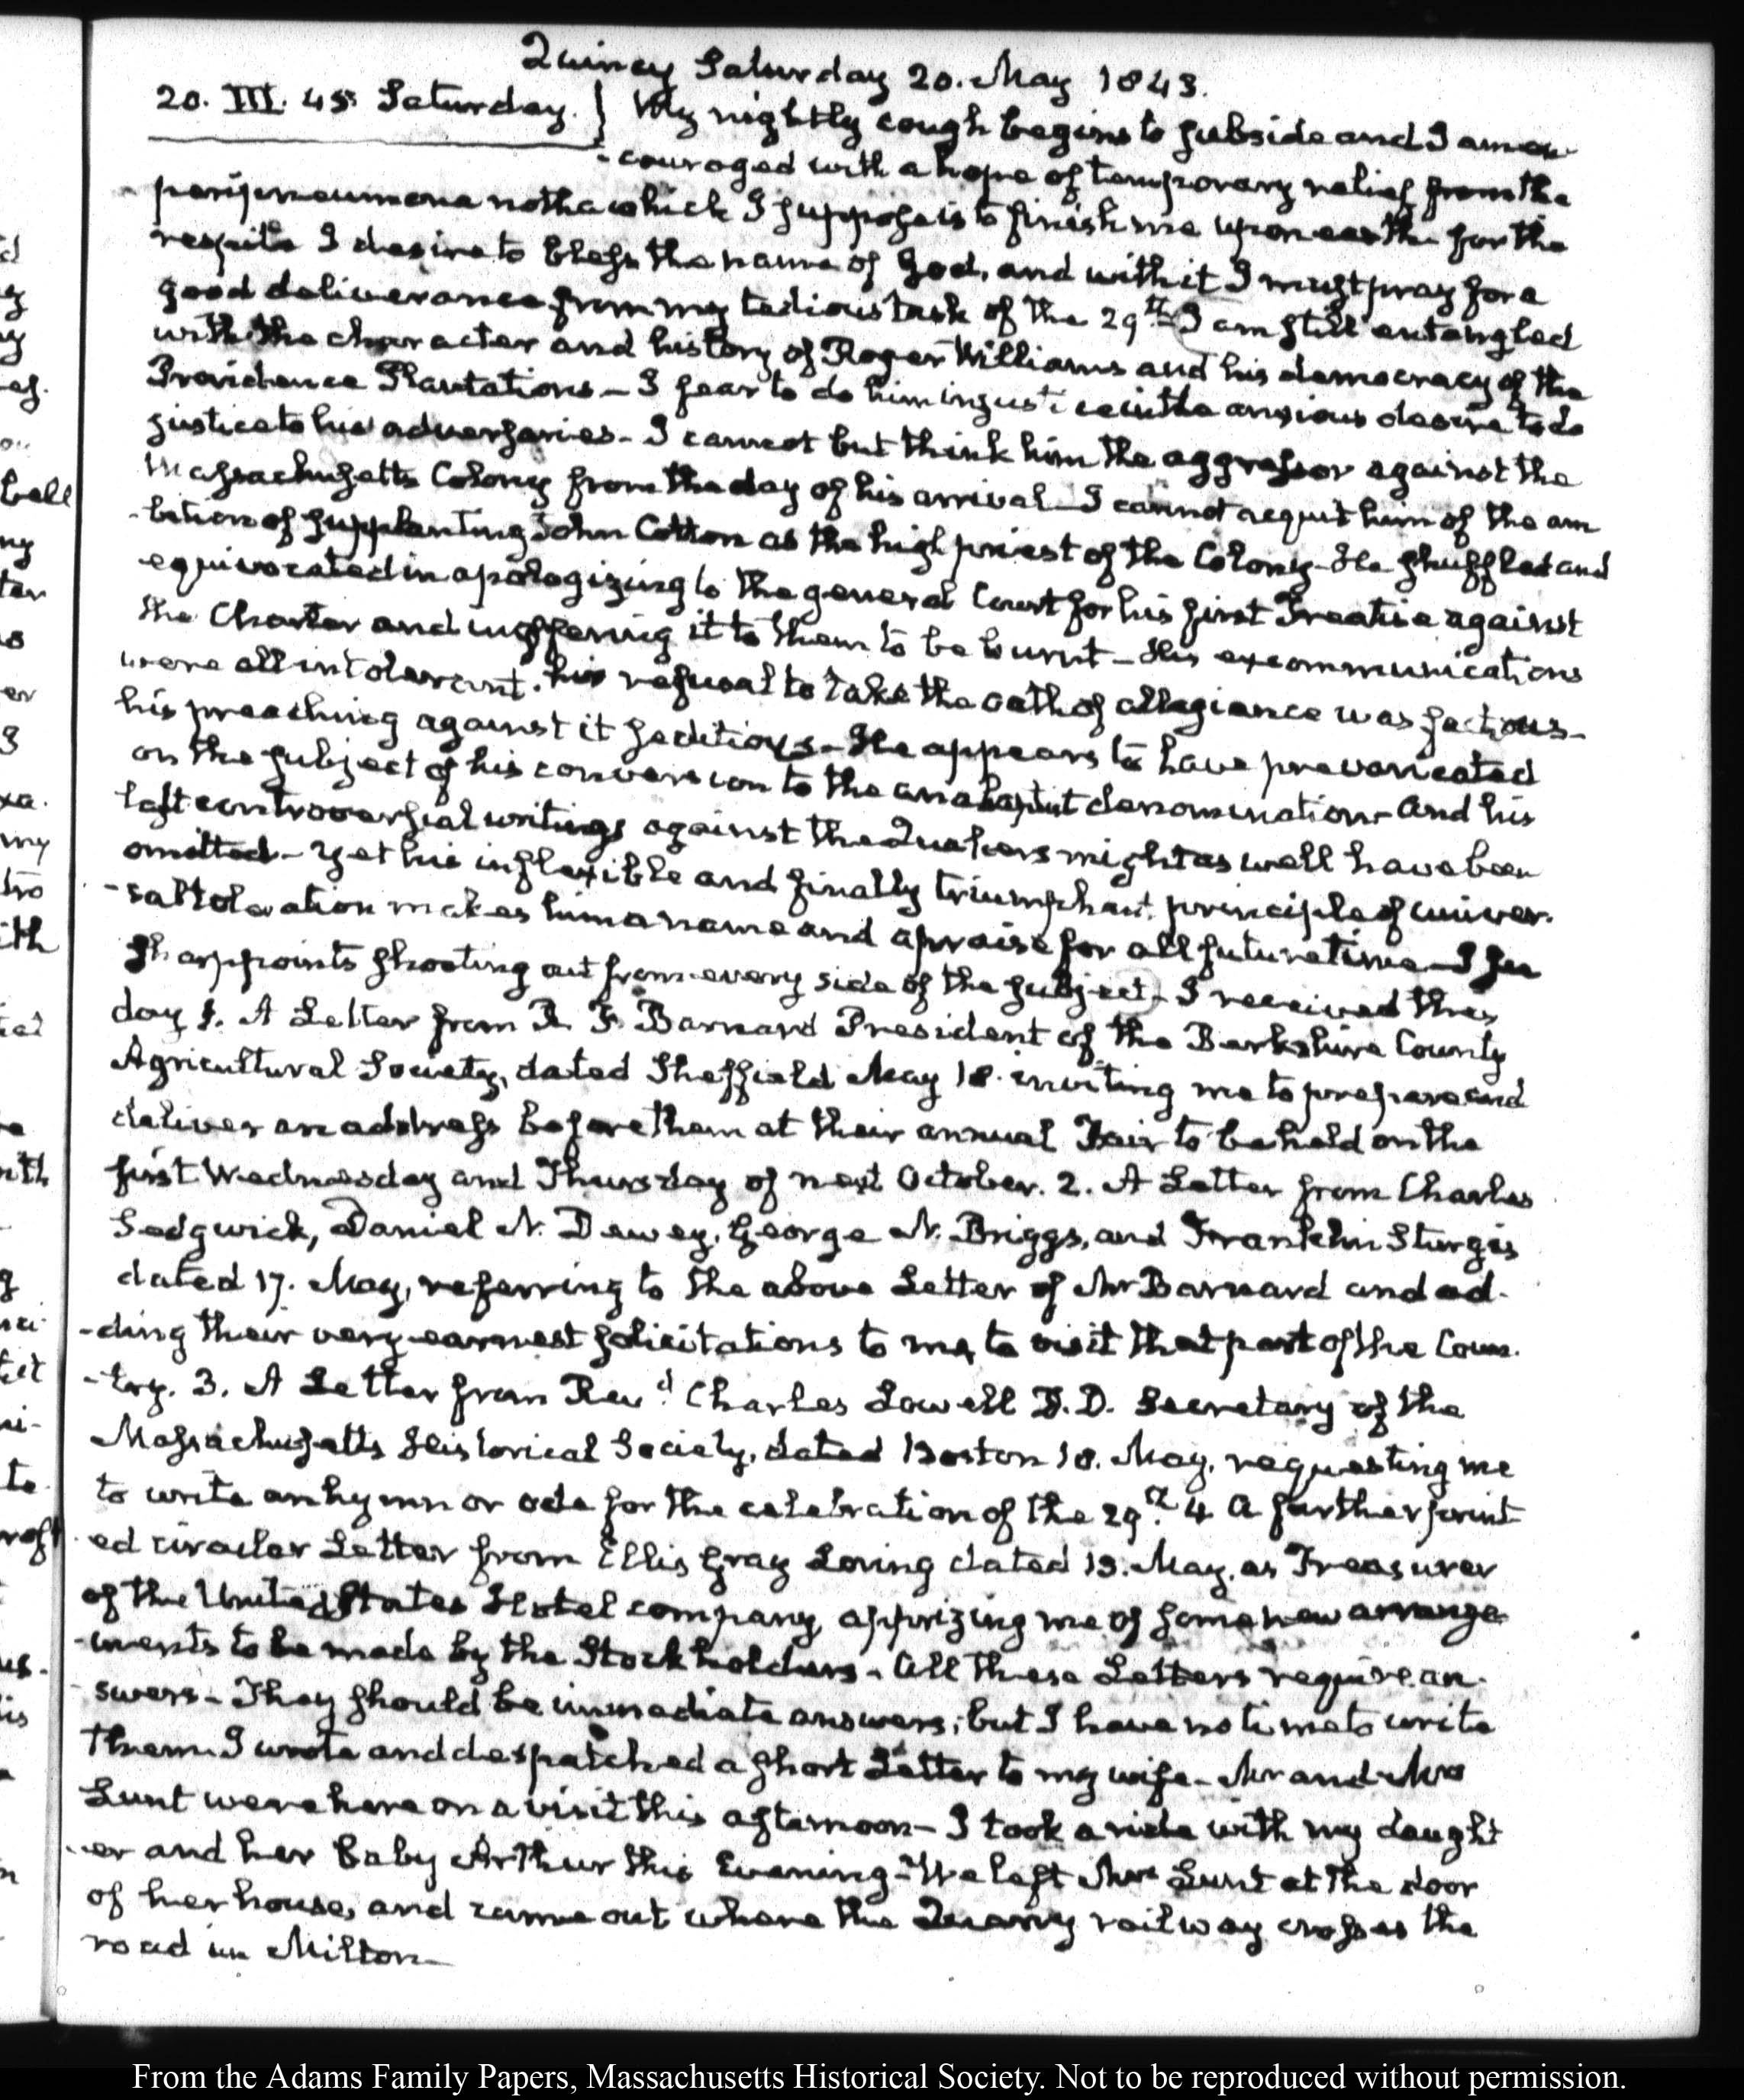 Quincy Saturday 20. May 1843.
20. III. 45 Saturday. } My nightly cough begins to subside and I am en-
-couraged with a hope of temporary relief from the
peripneumonia notha which I suppose is to finish me upon earth for the
respite I desire to bless the name of God, and with it I must pray for a
good deliverance from my tedious task of the 29th I am still entangled
with the character and history of Roger Williams and his democracy of the
Providence Plantations - I fear to do him injustice in the anxious desire to do
justice to his adversaries - I cannot but think him the aggressor against the
Massachusetts Colony from the day of his arrival - I cannot acquit him of the am
-bition of supplanting John Cotton as the high priest of the Colony - He shuffled and
equivocated in apologizing to the general Court for his first Treatise against
the Charter and in offering it to them to be burnt - His excommunications
were all intolerant. his refusal to take the oath of allegiance was factious -
his preaching against it seditious - He appears to have prevaricated
on the subject of his conversion to the anabaptist denomination - and his
last controversial writings against the Quakers might as well have been
omitted - Yet his inflexible and finally triumphant principle of univer-
-sal toleration makes him a name and a praise for all future time - I see
sharp points shooting out from every side of the subject - I received this
day 1. A Letter from R. F. Barnard President of the Berkshire County
Agricultural Society, dated Sheffield May 18. inviting me to prepare and
deliver an address before them at their annual Fair to be held on the
first Wednesday and Thursday of next October. 2. A Letter from Charles
Sedgwick, Daniel N. Dewey, George N. Briggs, and Franklin Sturgis
dated 17. May, referring to the above Letter of Mr Barnard and ad-
-ding their very earnest solicitations to me to visit that part of the Coun-
-try. 3. A Letter from Revd. Charles Lowell D.D. Secretary of the
Massachusetts Historical Society, dated Boston 18. May, requesting me
to write an hymn or ode for the celebration of the 29th. 4 A further print-
ed circular Letter from Ellis Gray Loring dated 19. May, as Treasurer
of the United States Hotel company apprizing me of some new arrange
-ments to be made by the Stockholders - All these Letters require an-
swers - They should be immediate answers; but I have no time to write
them. I wrote and despatched a short Letter to my wife - Mr and Mrs
Lunt were here on a visit this afternoon - I took a ride with my daught
-er and her baby Arthur this Evening - We left Mrs Lunt at the door
of her house, and came out where the Quarry railway crosses the
road in Milton -
From the Adams Family Papers, Massachusetts Historical Society. Not to be reproduced without permission.